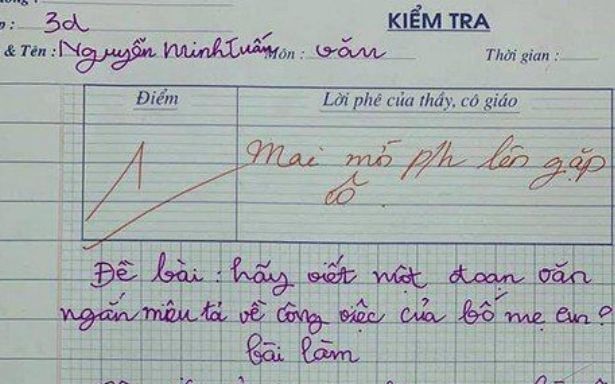 3d
KIỂM TRA
& Tên : Nguyễn Minh Tuấn Môn : văn Thời gian :
Điểm Lời phê của thầy, cô giáo
1 Mai mờ p/h lên gặp
cô
Đề bài : hãy viết một đoạn văn
ngắn miêu tả về công việc của bố mẹ em?
bài làm